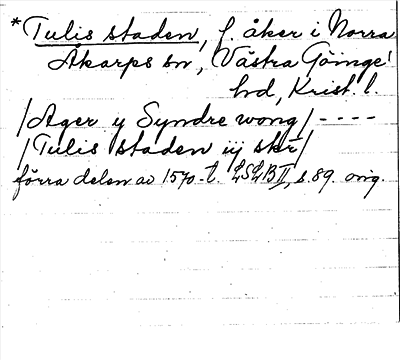 *Tulis staden, f. åker i Norra
Åkarps sn, Västra Göinge
hd, Krist. l.
/Ager y Syndre wong/ - - - -
/Tulis staden iij skr/
förra delen av 1570-t. LSLB II, s. 89. orig.